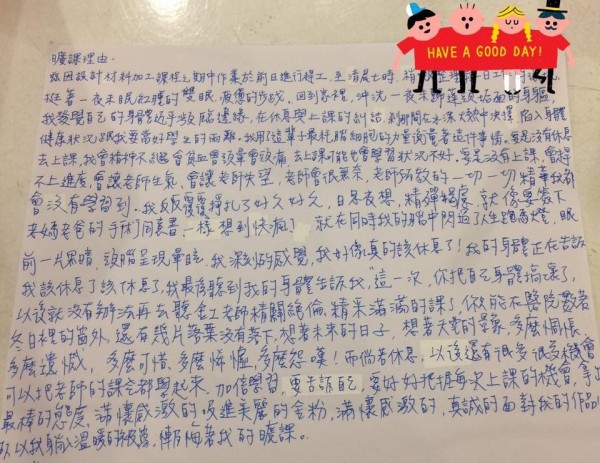 HAVE A GOOD DAY!
曠課理由.
敬因設計材料加工課程之期中作業於前日進行趕工,至清晨七時
挺著一夜未眠紅腫的雙眼,疲憊的步伐,回到家裡,沖洗一夜未歸
我發覺自己的身體近乎潰敗邊緣,在休息與上課的
健康狀況跟我要當好學生的兩難.我用了這輩子最耗腦細胞的力量衡量著這件事情.要是沒有休息
去上課,我會精神不繼會貧血會沒拿會頭痛 去上課可能也會學習狀況不好.要是沒有上課,會趕
不上進度,會讓老師生氣,會讓老師失望,老師會很無奈,老師所教的一切一切精華我都
會沒有學習到.我反反覆覆掙扎了好久好久,日思夜想,精彈竭慮,就像要簽下
老媽老爸的手術同意書一樣,想到快瘋了 就在同時我的腦中閃過了人生跑馬燈,眼
前一片黑暗,頭腦呈現暈眩,我深刻的感覺,我好像真的該休息了!我的身體正在告訴
我該休息了該休息了,我最後聽到我的身體告訴我,"這一次,你把自己身體搞壞了,
以後就沒有辦法再去聽金工老師精闢絕倫,精采滿滿的課了,你只能在醫院數著
冬日裡的窗外,還有幾片落葉沒有落下,想著未來的日子,想著天堂的景象,多麼惆悵,
多麼遺憾,多麼可惜,多麼憐惜,多麼怨嘆!而倘若休息,以後還有很多很多機會
可以把老師的課全都學起來.加倍學習,更告訴自己,要好好把握每次上課的機會,拿出
最棒的態度,滿懷感激的吸進美麗的金粉,滿懷感激的,真誠的面對我的作品
所以我躺入溫暖的被窩,懺悔著我的曠課。